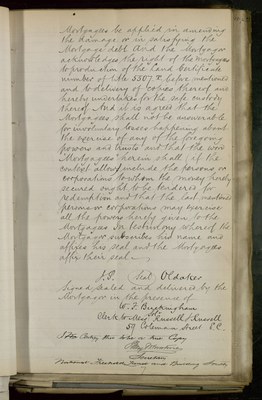 Mortgagees be applied in amending
the damage or in satisfying the
Mortgage debt And the Mortgagor
acknowledges the right of the Mortgagees
to production of the Land Certificate
number of title 5507 before mentioned
and to delivery of copies thereof and
hereby undertakes for the safe custody
thereof And it is agreed that the
Mortgagees shall not be answerable
for involuntary losses happening about
the exercise of any of the foregoing
powers and trusts and that the word
Mortgagees herein shall, if the
context allow, include the persons or
corporations to whom the money hereby
secured ought to be tendered for
redemption and that the last mentioned
persons or corporations may exercise
all the powers hereby given to the
Mortgagees In testimony whereof the
Mortgagor subscribes his name and
affixes his seal and the Mortgagees
affix their seal
J. P. Seal Oldaker
Signed, Sealed and delivered by the
Mortgagor in the presence of
W. F. Buckingham
Clerk to Messrs Russell & Russell
59 Coleman Street E.C.
I do Certify this to be a true Copy
National Freehold Land and Building Society